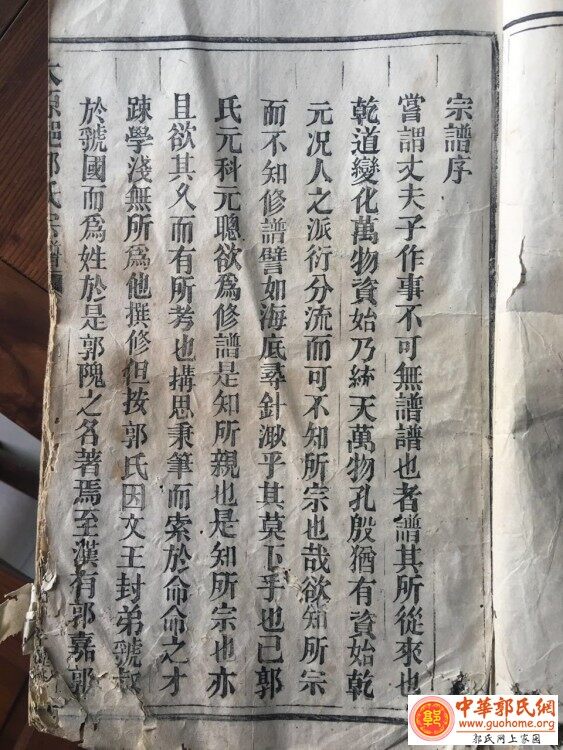 宗譜序
嘗謂丈夫子作事不可無譜譜也者譜其所從來也
乾道變化萬物資始乃統天萬物孔殷猶有資始乾
元况人之派衍分流而可不知所宗也哉欲知所宗
而不知修譜譬如海底尋針渺乎其莫下乎也已郭
氏元科元聰欲爲修譜是知所親也是知所宗也亦
且欲其久而有所考也搆思秉筆而索於命命之才
踈學淺無所爲他撰修但按郭氏因文王封弟虢叔
於虢國而爲姓於是郭隗之名著焉至漢有郭嘉郭
原郭氏宗譜
中華郭氏網
www.guohome.org
郭氏网上家園